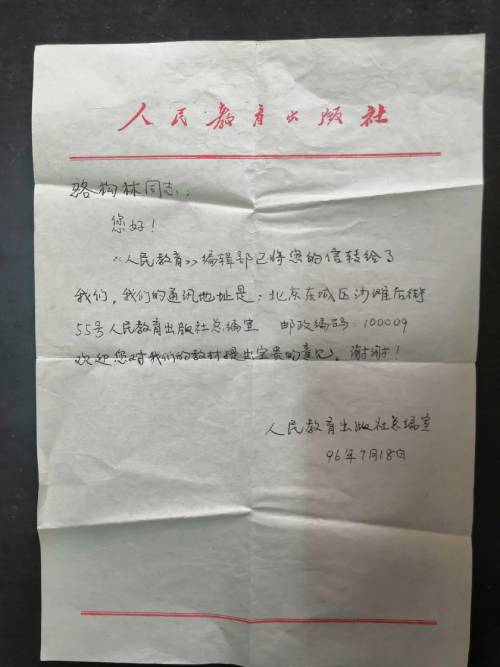 人民教育出版社
骆构林同志:
您好!
《人民教育》编辑部已将您的信转给了
我们,我们的通讯地址是:北京东城区沙滩后街
55号人民教育出版社总编室 邮政编码:100009
欢迎您对我们的教材提出宝贵的意见。谢谢!
人民教育出版社总编室
96年7月18日